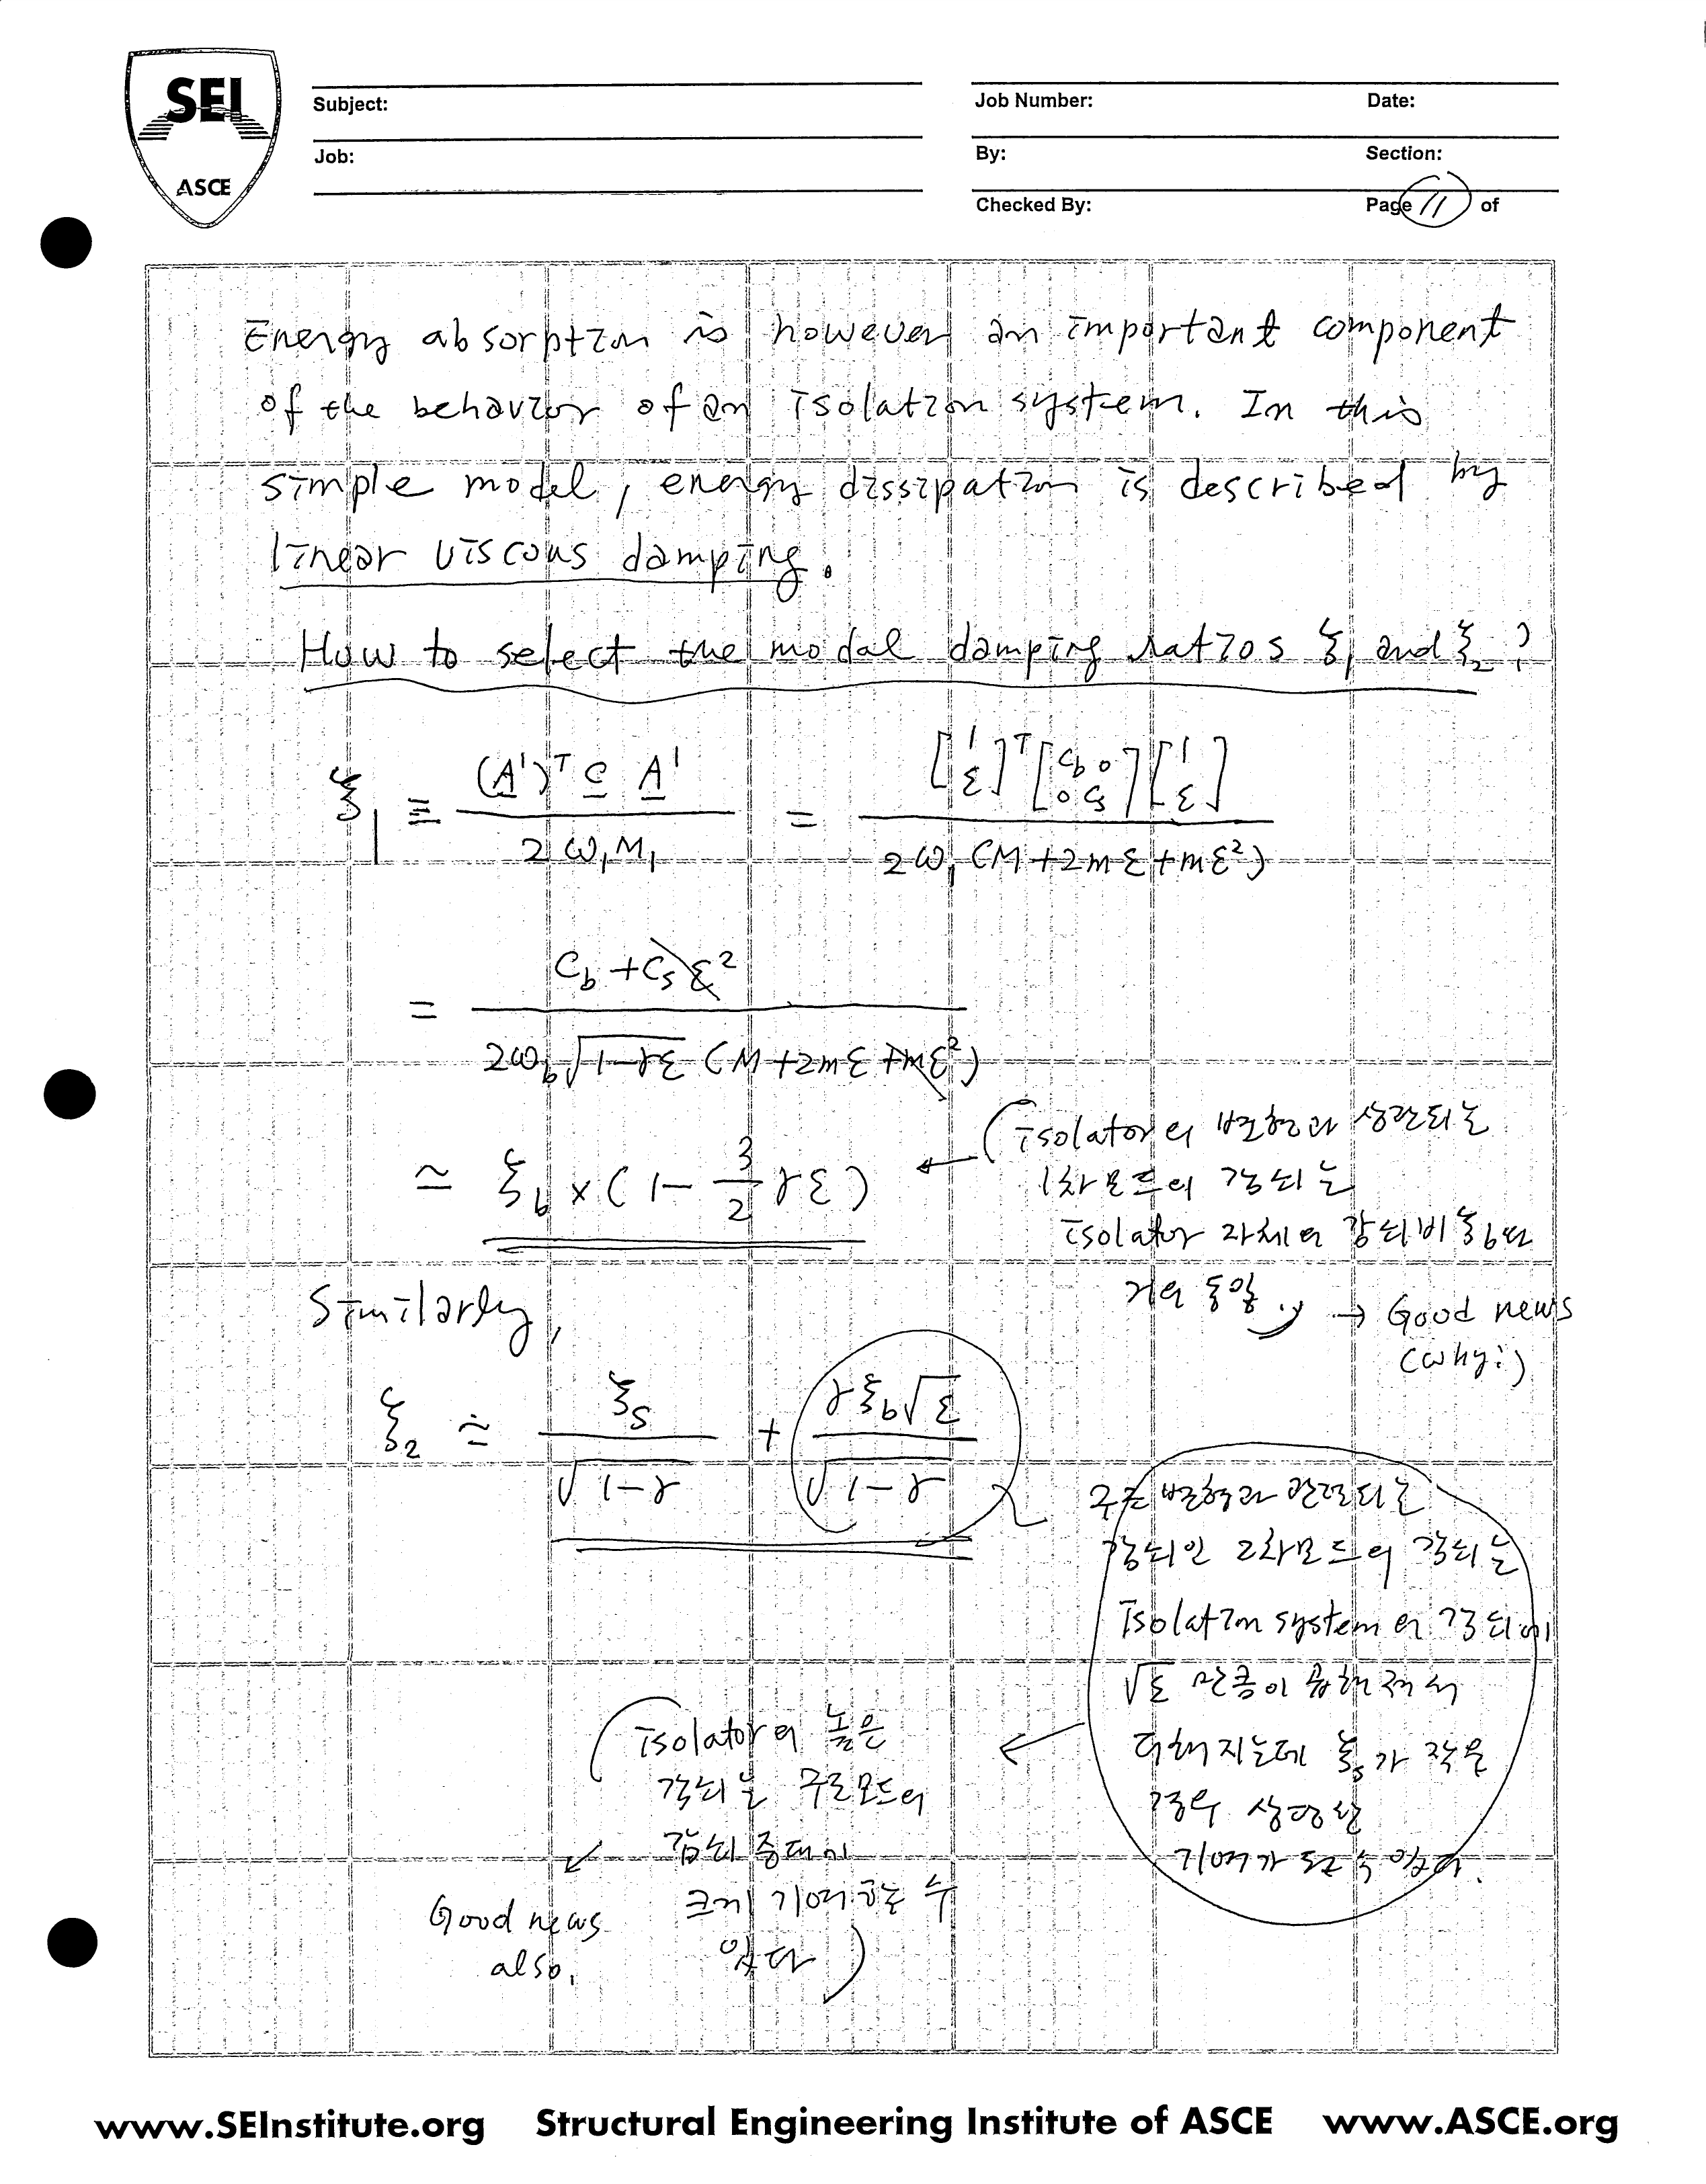 SEI
ASCE
Subject:
Job:
Job Number: Date:
By: Section:
Checked By: Page 11 of
Energy absorption is however an important component
of the behavior of an isolation system. In this
simple model, energy dissipation is described by
linear viscous damping.
How to select the modal damping ratios ξ₁ and ξ₂?
ξ₁ ≡ (A¹)ᵀ C A¹ / 2ω₁M₁ = [1 ε]ᵀ [c_b 0 0 c_s] [1 ε] / 2ω₁(M+2mε+mε²)
= c_b + c_s ε² / 2ω_b √(1-γε) (M+2mε+mε²)
≃ ξ_b × (1 - 3/2 γε) ← (isolator의 변형과 상관되는
1차모드의 감쇠는
isolator 자체의 감쇠비 ξ_b와
거의 동일.) → Good news
(why?)
Similarly,
ξ₂ ≃ ξ_s / √(1-γ) + γξ_b√ε / √(1-γ)
구조변형과 관련되는
감쇠인 2차모드의 감쇠는
isolation system의 감쇠에
√ε 만큼이 곱해져서
더해지는데 ξ_s가 작은
경우 상당한
기여가 될 수 있다.
(isolator의 높은
감쇠는 구조모드의
감쇠 증대에
크게 기여하는 수
있다)
Good news
also.
www.SEInstitute.org Structural Engineering Institute of ASCE www.ASCE.org